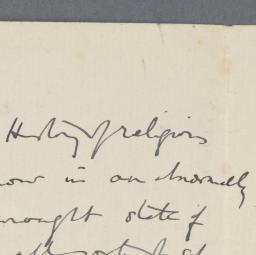 History of religions
now in an abnormally
wrought state of